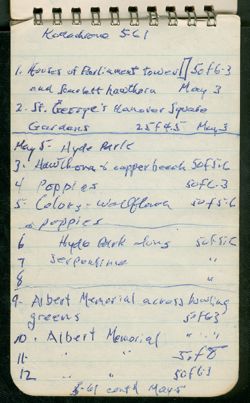 Kodachrome 561
1. Houses of Parliament towers 50f6.3
and Scarlett hawthorn May 3
2. St. George's Hanover Square
Gardens 25f4.5 May 3
May 5 - Hyde Park
3. Hawthorn & copper beech 50f5.6
4 Poppies 50f6.3
5 Colors - Wallflower 50f5.6
& poppies
6 Hyde Park 50f5.6
7 Serpentine "
8 "
9. Albert Memorial across bowling
greens 50f6.3
10. Albert Memorial " "
11. " " 50f8
12 " 50f6.3
May 5